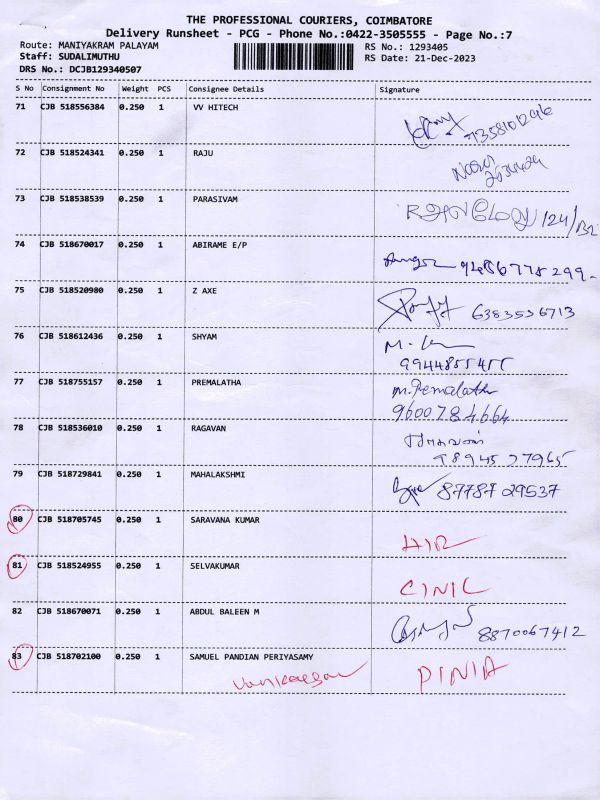 THE PROFESSIONAL COURIERS, COIMBATORE
Delivery Runsheet - PCG - Phone No.:0422-3505555 - Page No.:7
Route: MANIYAKRAM PALAYAM RS No.: 1293405
Staff: SUDALIMUTHU RS Date: 21-Dec-2023
DRS No.: DCJB129340507
S No Consignment No Weight PCS Consignee Details Signature
71 CJB 518556384 0.250 1 VV HITECH
72 CJB 518524341 0.250 1 RAJU
73 CJB 518538539 0.250 1 PARASIVAM
74 CJB 518670017 0.250 1 ABIRAME E/P
75 CJB 518520980 0.250 1 Z AXE 6383536713
76 CJB 518612436 0.250 1 SHYAM
9944855455
77 CJB 518755157 0.250 1 PREMALATHA M.Premalatha
9600784664
78 CJB 518536010 0.250 1 RAGAVAN
79 CJB 518729841 0.250 1 MAHALAKSHMI 87787 29537
80 CJB 518705745 0.250 1 SARAVANA KUMAR
81 CJB 518524955 0.250 1 SELVAKUMAR
82 CJB 518670071 0.250 1 ABDUL BALEEN M 8870067412
83 CJB 518702100 0.250 1 SAMUEL PANDIAN PERIYASAMY